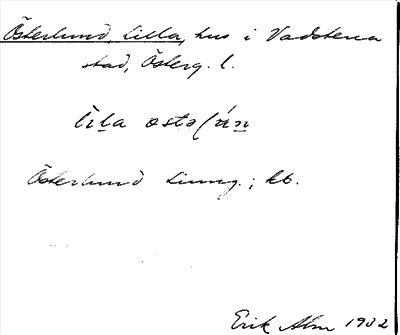 Österlund, Lilla, hus i Vadstena
stad, Österg. l.
Österlund Ljung.; kb.
Erik Alm 1932